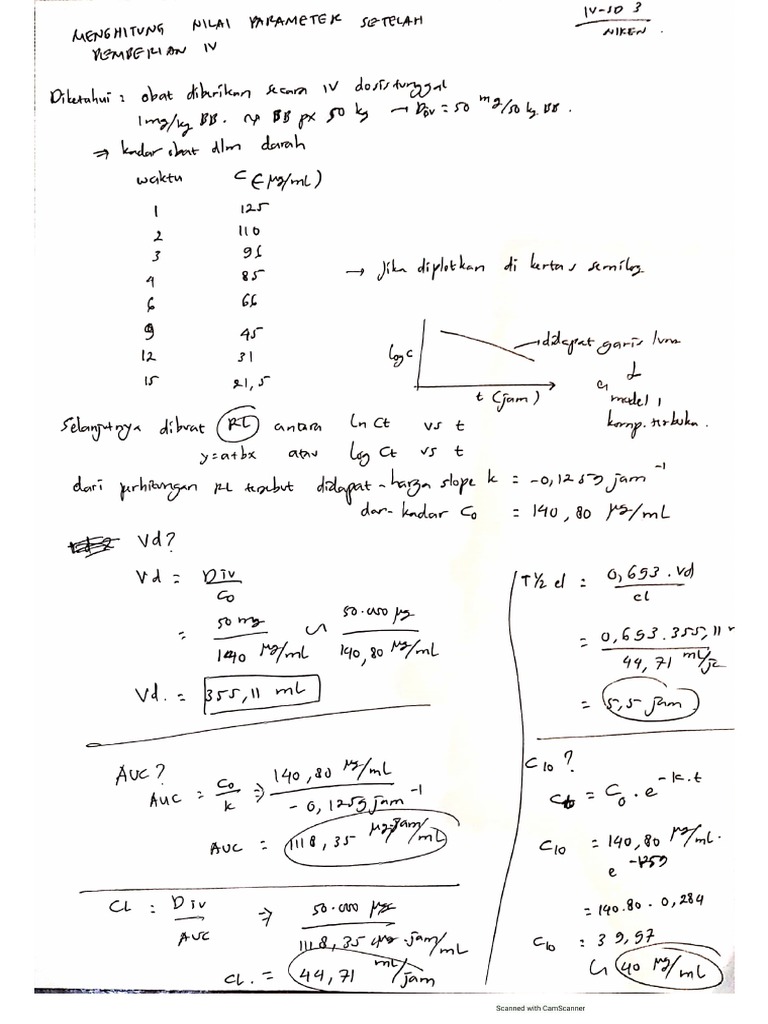 MENGHITUNG NILAI PARAMETER SETELAH
PEMBERIAN IV
IV-SD 3
NIKEN.
Diketahui : obat diberikan secara IV dosis tunggal
1mg/kg BB. ~> BB px 50 kg → Div = 50 mg/50 kg BB.
⇒ kadar obat dlm darah
waktu C (μg/mL)
1 125
2 110
3 96
4 85
6 66
9 45
12 31
15 21,5
→ Jika diplotkan di kertas semilog
log c
t (jam)
didapat garis lurus
model 1
komp. terbuka.
Selanjutnya dibuat RL antara ln Ct vs t
y=a+bx atau log Ct vs t
dari perhitungan RL tersebut didapat harga slope k = -0,1259 jam⁻¹
dan kadar C₀ = 140,80 μg/mL
Vd?
Vd = Div
C₀
= 50 mg ∽ 50.000 μg
140 μg/mL 140,80 μg/mL
Vd. = 355,11 mL
AUC?
AUC = C₀ ⇒ 140,80 μg/mL
k -0,1259 jam⁻¹
AUC = 1118,35 μg.jam/mL
CL = Div ⇒ 50.000 μg
AUC 1118,35 μg.jam/mL
CL. = 44,71 mL/jam
T½ el = 0,693 . Vd
cl
= 0,693.355,11
44,71 mL/ja
= 5,5 jam
C10 ?
= C₀ . e^-k.t
C10 = 140,80 μg/mL.
e^-1259
= 140.80 . 0,284
C10 = 39,97
↳ 40 μg/mL
Scanned with CamScanner